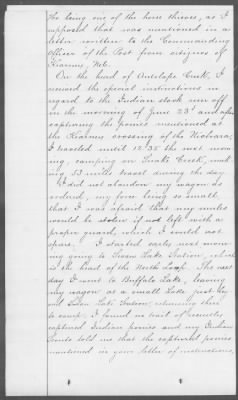 for being one of the horse thieves, as I
supposed that was mentioned in a
letter written to the Commanding
Officer of the Post from citizens of
Kearney, Neb.
On the head of Antelope Creek, I
received the special instructions in
regard to the Indian stock run off
in the morning of June 23d and after
capturing the ponies mentioned at
the Kearney crossing of the Niobrara;
I traveled until 12:35 the next morn-
ing, camping on Snake Creek, mak-
ing 53 miles travel during the day.
I did not abandon my wagon as
ordered, my force being so small
that I was afraid that my mules
would be stolen if not left with a
proper guard, which I could not
spare. I started early next morn-
ing going to Swan Lake Station, which
is the head of the North Loup. The next
day I went to Buffalo Lake, leaving
my wagon at a small Lake just
out Swan Lake Station, returning then
to camp. I found no trail of recently
captured Indian ponies and my Indian
Scouts told us that the captured ponies
mentioned in your letter of instructions,